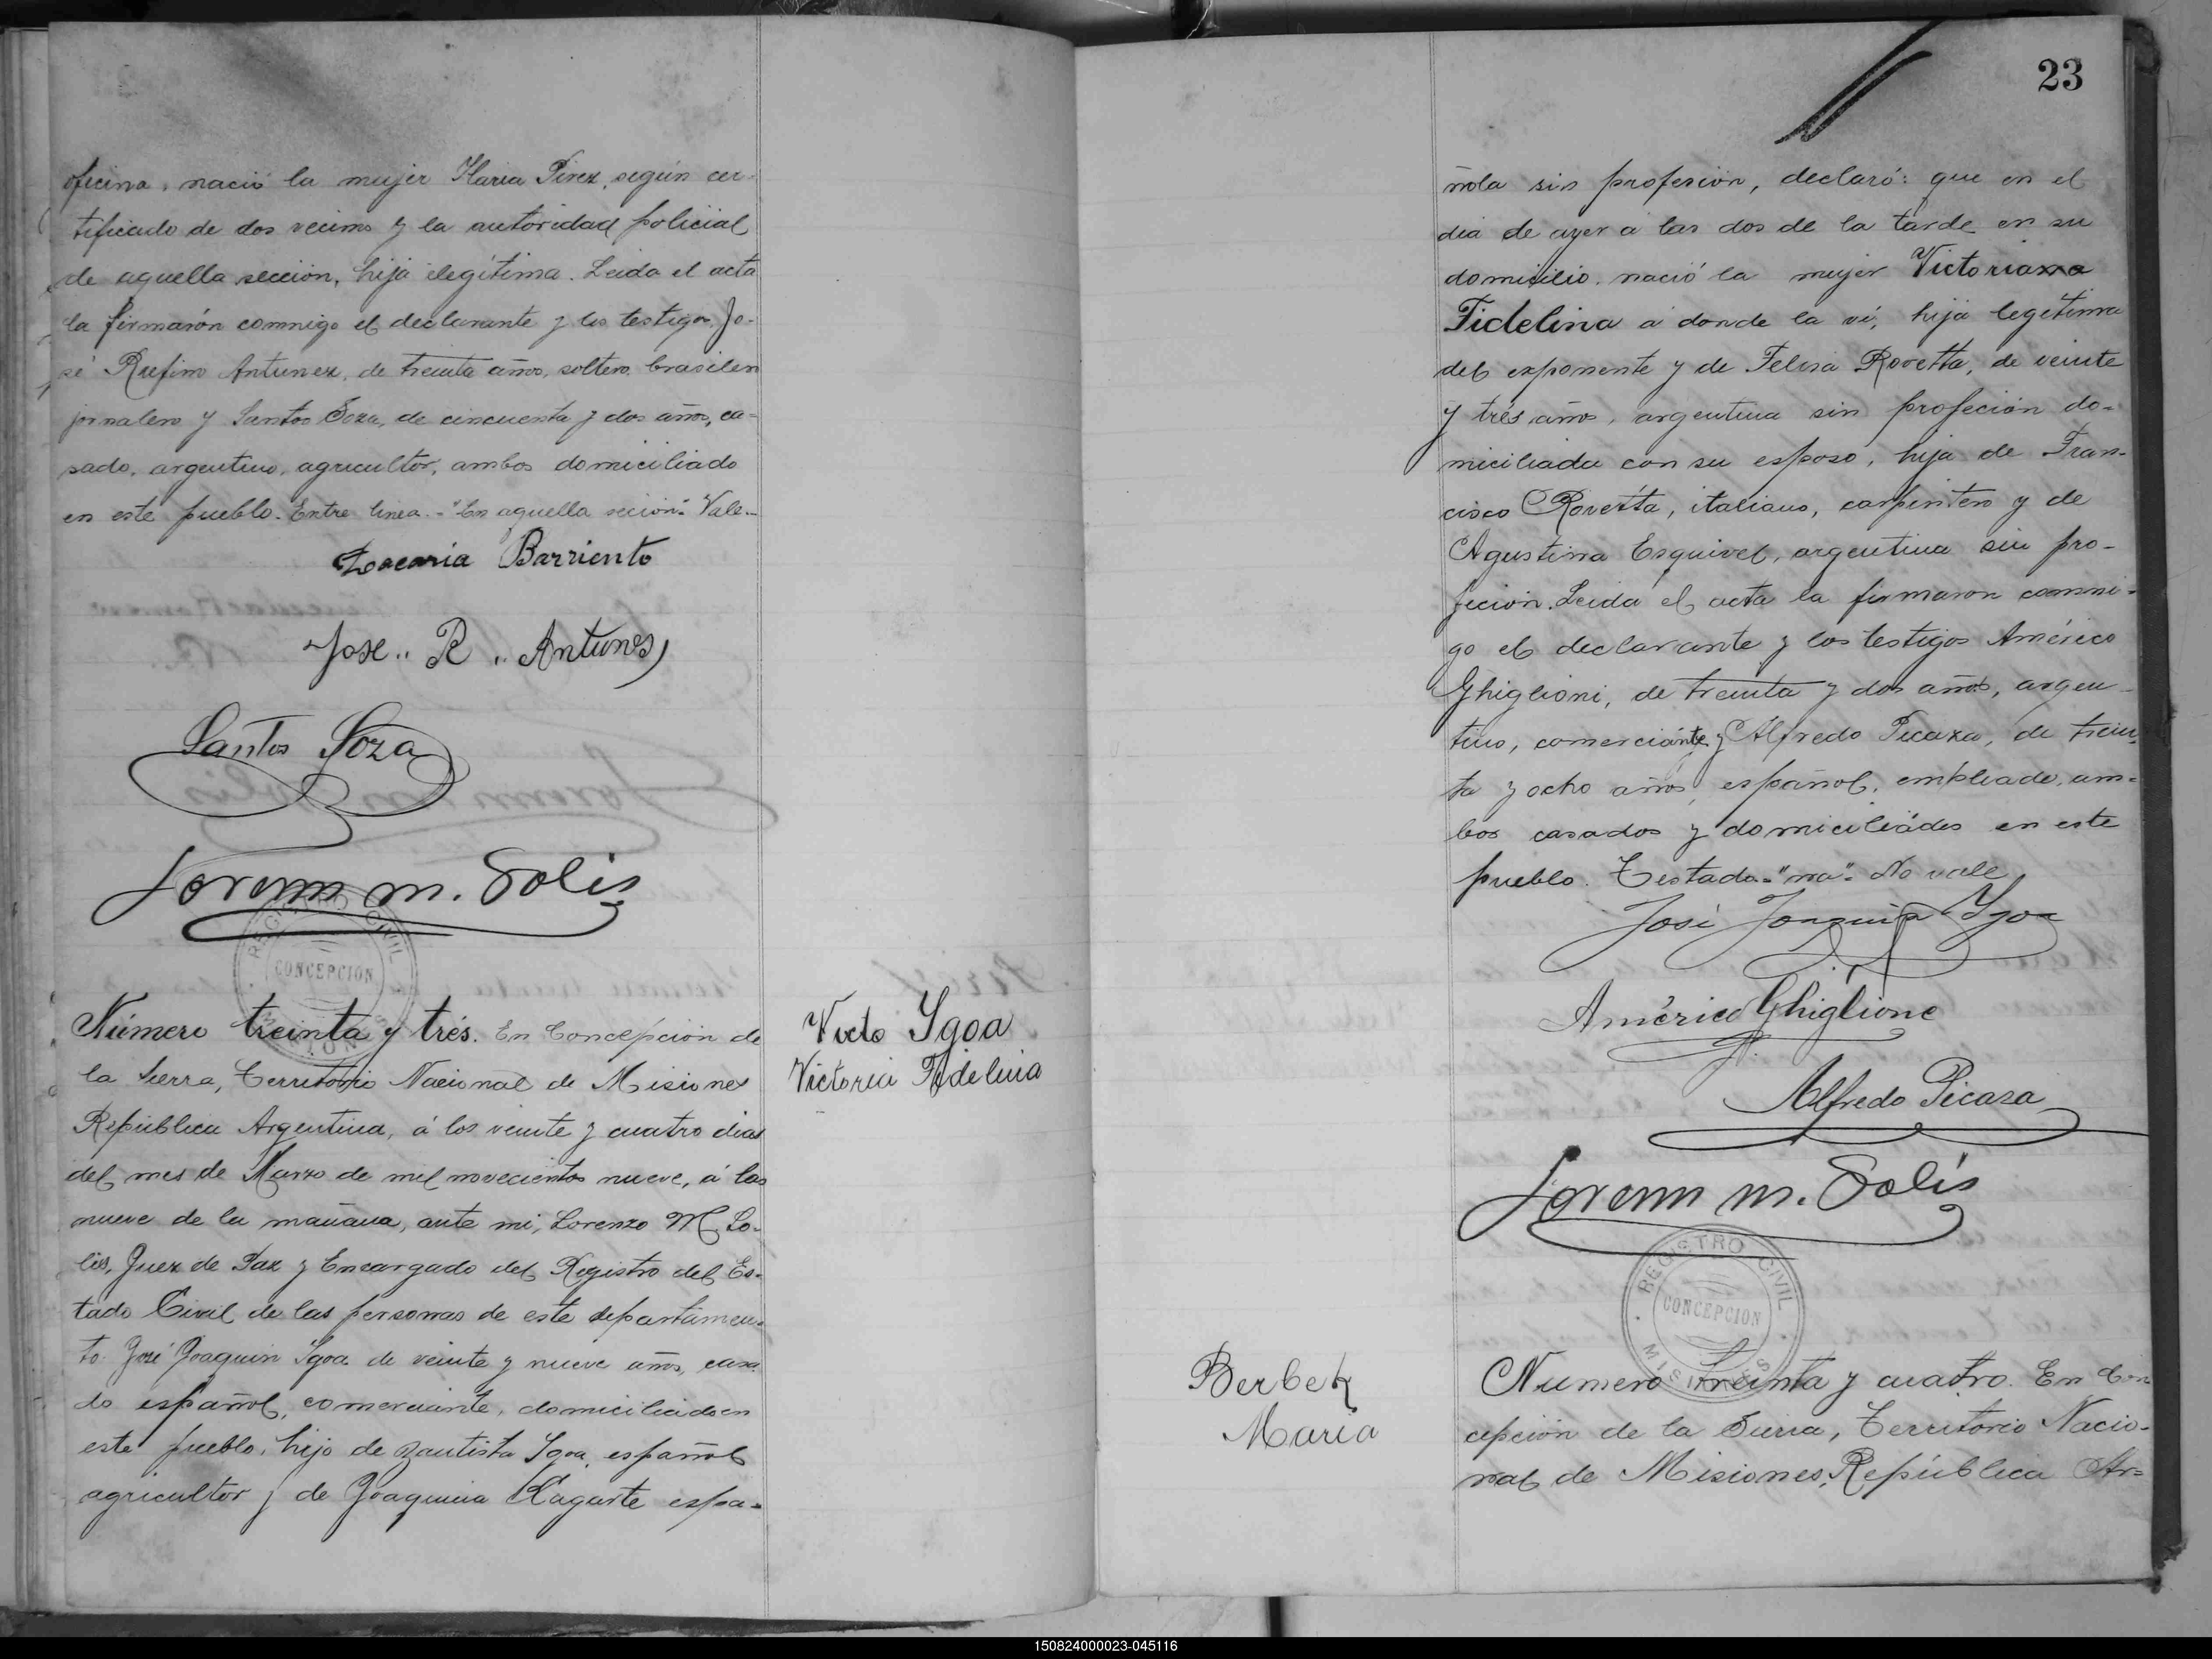 oficina, nació la mujer Maria Pirez, según cer-
tificado de dos vecinos y la autoridad policial
de aquella sección, hija ilegítima. Leida el acta
la firmarón conmigo el declarante y los testigos Jo-
sé Rufino Antunez, de treinta años, soltero brasilero
jornalero y Santos Soza, de cincuenta y dos años, ca-
sado, argentino, agricultor, ambos domiciliado
en este pueblo. Entre linea. "En aquella seción" Vale-
Zacaria Barriento
Jose.. R.. Antunes
Santos Soza
Lorenzo M. Solis
REGISTRO CIVIL
CONCEPCION
MISIONES
Número treinta y trés. En Concepción de
la Sierra, Territorio Nacional de Misiones
República Argentina, á los veinte y cuatro dias
del mes de Marzo de mil novecientos nueve, á las
nueve de la mañana, ante mi, Lorenzo M. So-
lis, Juez de Paz y Encargado del Registro del Es-
tado Civil de las personas de este departamen-
to José Joaquin Ygoa de veinte y nueve años, casa
do español, comerciante, domiciliado en
este pueblo, hijo de Bautista Ygoa, español
agricultor y de Joaquina Lagarte espa-
Ygoa
Victoria Fidelina
23
ñola sin profesión, declaró: que en el
dia de ayer á las dos de la tarde en su
domicilio nació la mujer Victoriana
Fidelina á donde la ví, hija legítima
del exponente y de Felisa Rovetta, de veinte
y trés años, argentina sin profeción do-
miciliada con su esposo, hija de Fran-
cisco Rovetta, italiano, carpintero y de
Agustina Esquivel, argentina sin pro-
feción. Leida el acta la firmaron conmi-
go el declarante y los testigos Américo
Ghiglioni, de treinta y dos años, argen-
tino, comerciánte y Alfredo Picaza, de trein-
ta y ocho años, español, empleado, am-
bos casados y domiciliádos en este
pueblo. Testado "na" No vale
José Joaquin Ygoa
Américo Ghiglione
Alfredo Picasa
Lorenzo M. Solis
REGISTRO CIVIL
CONCEPCION
MISIONES
Berbek
Maria
Numero treinta y cuatro. En Con
cepción de la Sierra, Territorio Nacio-
nal de Misiones, República Ar-
150824000023-045116